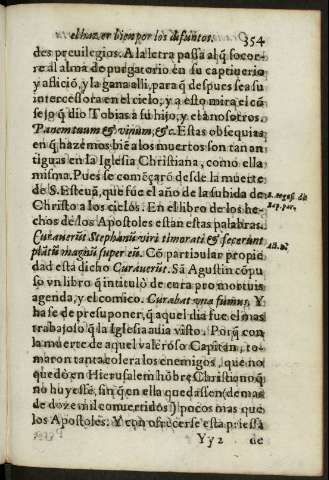 el hazer bien por los difuntos. 354
des preuilegios. A la letra passa al q̃ socor-
re al alma de purgatorio en su captiuerio
y afliciõ, y la gana alli, para q̃ despues sea su
intercessora en el cielo, y a esto mira el cõ
sejo q̃ dio Tobias a su hijo, y el a nosotros.
Panem tuum & vinum, &c. Estas obsequias
en q̃ hazemos biẽ a los muertos son tan an
tiguas en la Iglesia Christiana, como ella
misma. Pues se començarõ desde la muerte
de S. Esteuã, que fue el año de la subida de
Christo a los cielos. En el libro de los he-
chos de los Apostoles estan estas palabras.
Curauerũt Stephanũ viri timorati & fecerunt
plãtũ magnũ super eũ. Cõ particular propie
dad està dicho Curauerũt. Sã Agustin cõpu
so vn libro q̃ intitulò de cura pro mortuis
agenda, y el comico. Curabat vna funus. Y
ha se de presuponer, q̃ aquel dia fue el mas
trabajoso q̃ la Iglesia auia visto. Porq̃ con
la muerte de aquel valeroso Capitan, to-
maron tanta colera los enemigos, que no
quedò en Hierusalem hõbre Christiano q̃
no huyesse, sin q̃ en ella quedassen (de mas
de doze mil conuertidos) pocos mas que
los Apostoles. Y con ofrecerse esta priessa
Yy 2 de